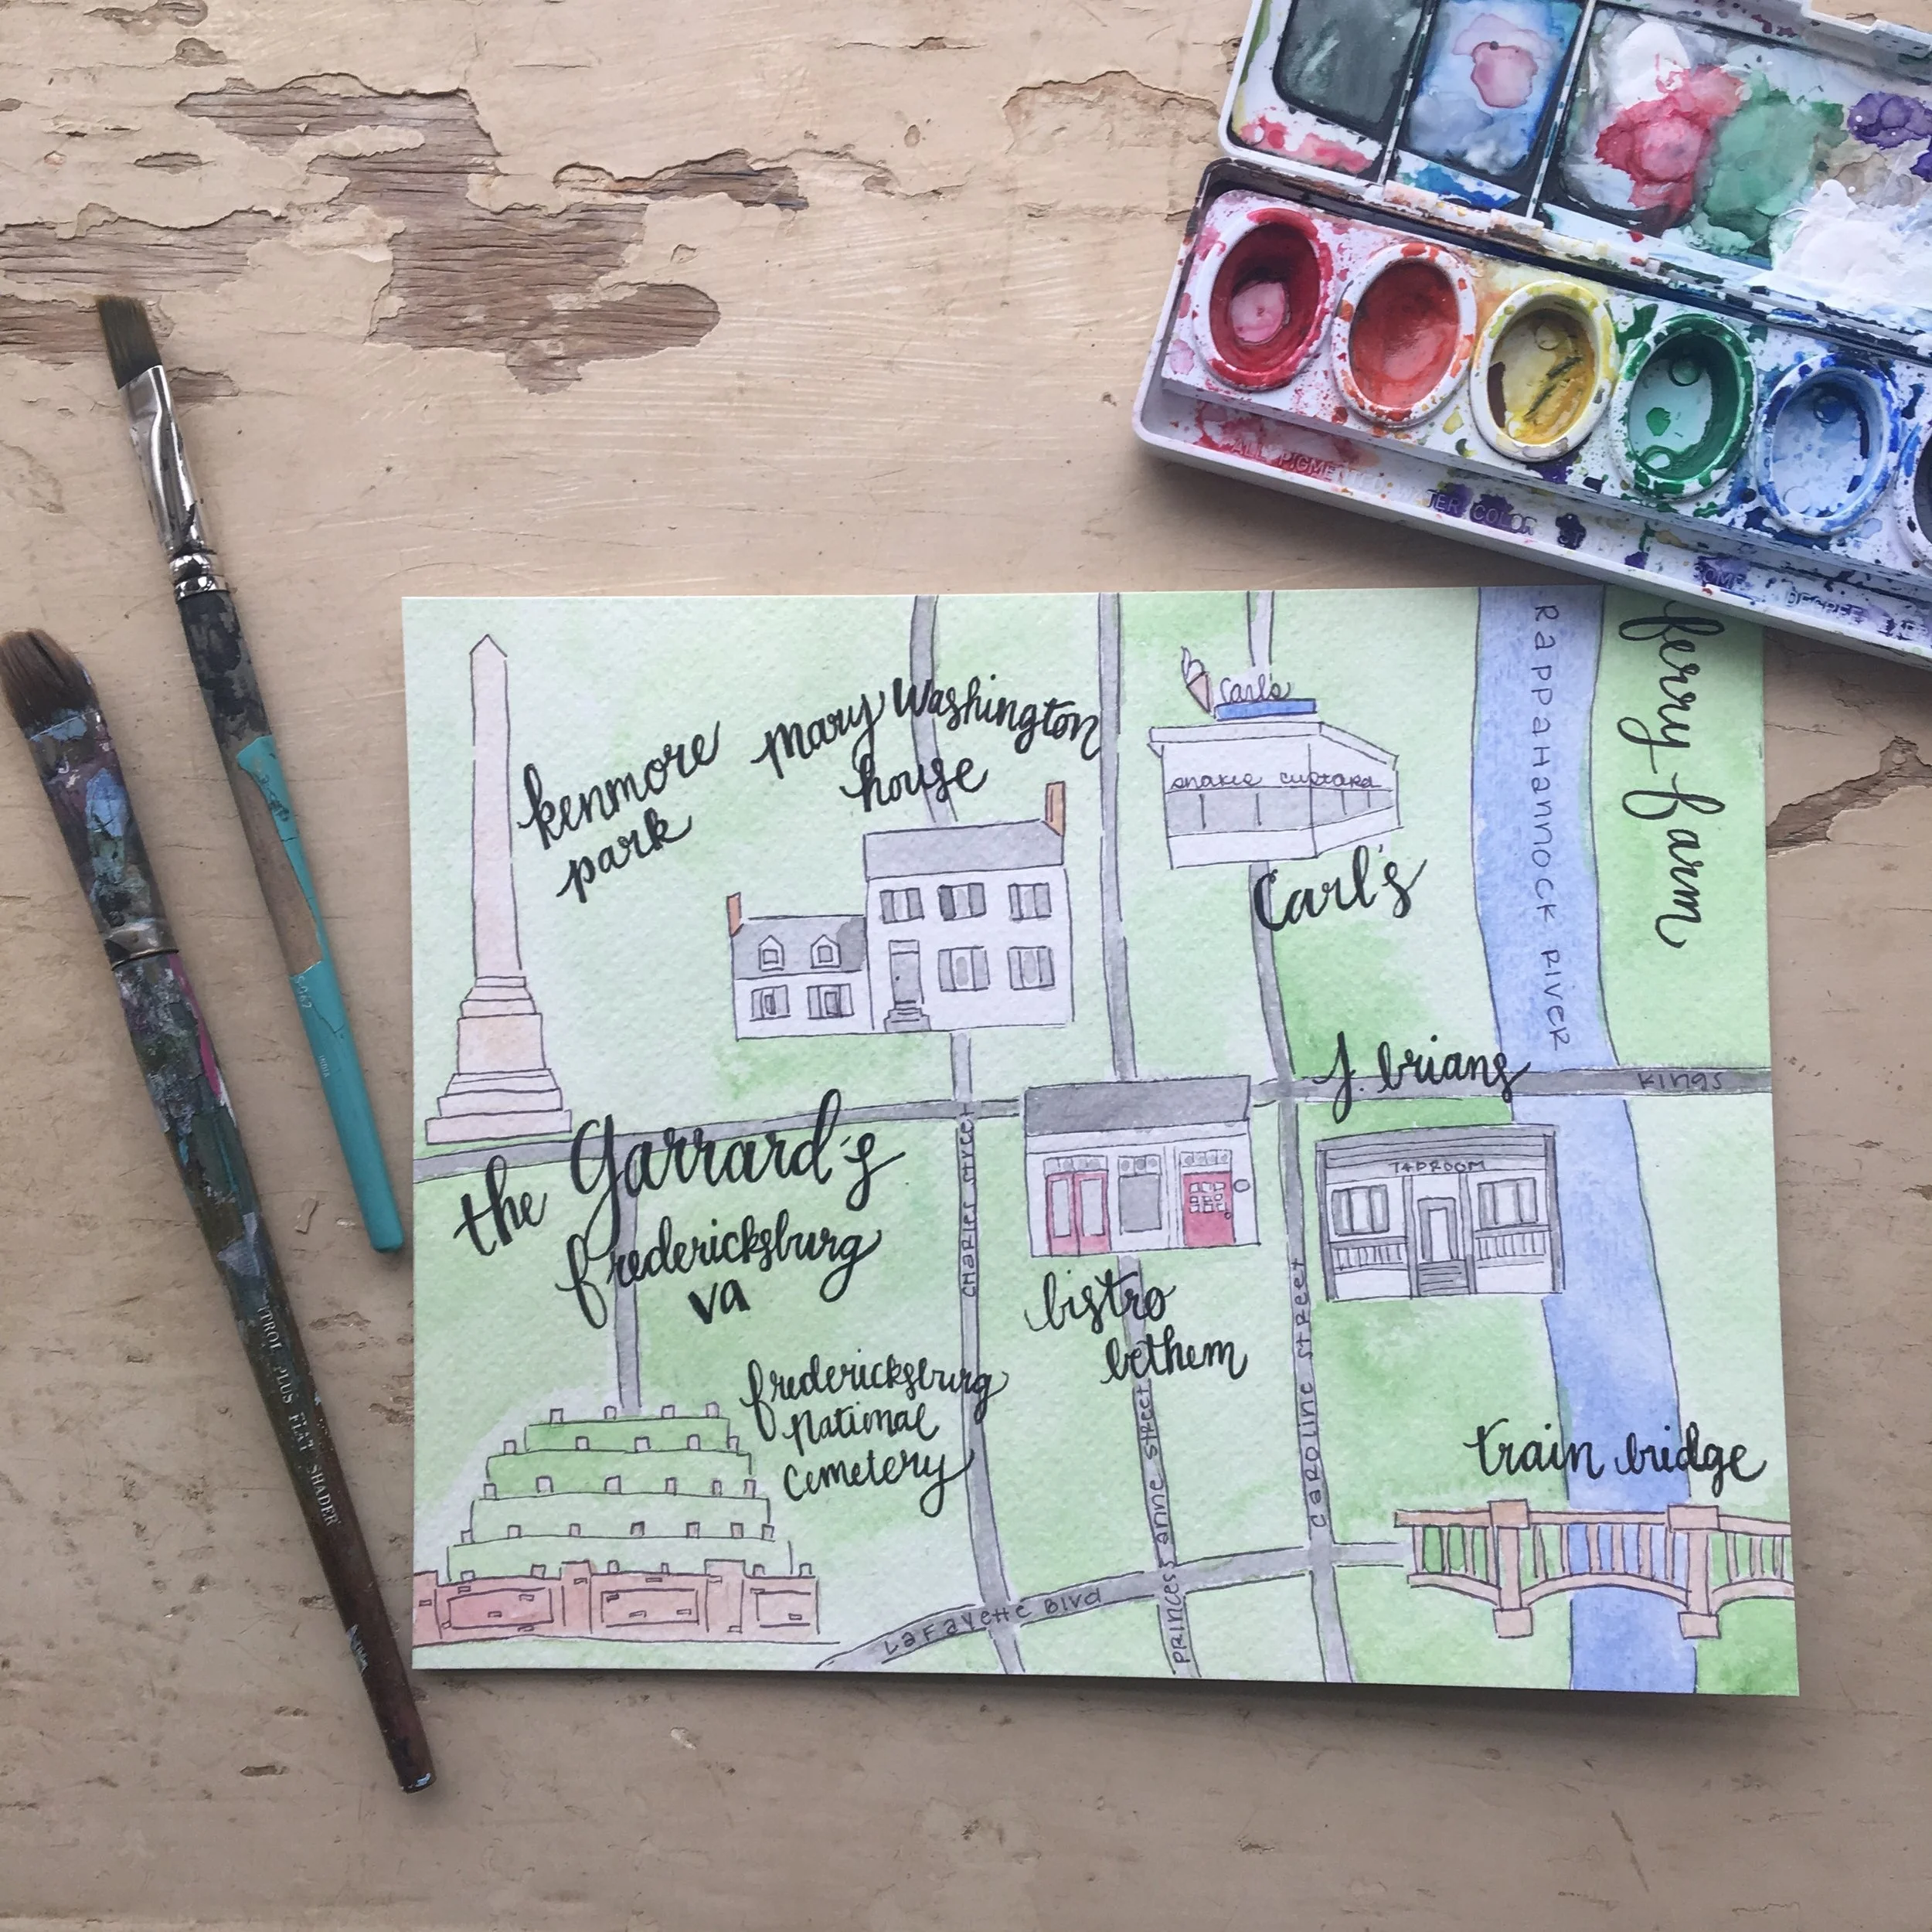 ALL PIGMENTED WATER COLOR
DEGREE
RAPPAHANNOCK RIVER
ferry farm
kenmore
park
mary Washington
house
Carl's
Carl's
J. brians
Kings
TAPROOM
the Garrard's
fredericksburg
va
CHARLES STREET
bistro
bethem
PRINCESS ANNE STREET
CAROLINE STREET
fredericksburg
national
cemetery
train bridge
LaFayette Blvd
PLUS FLAT SHADER